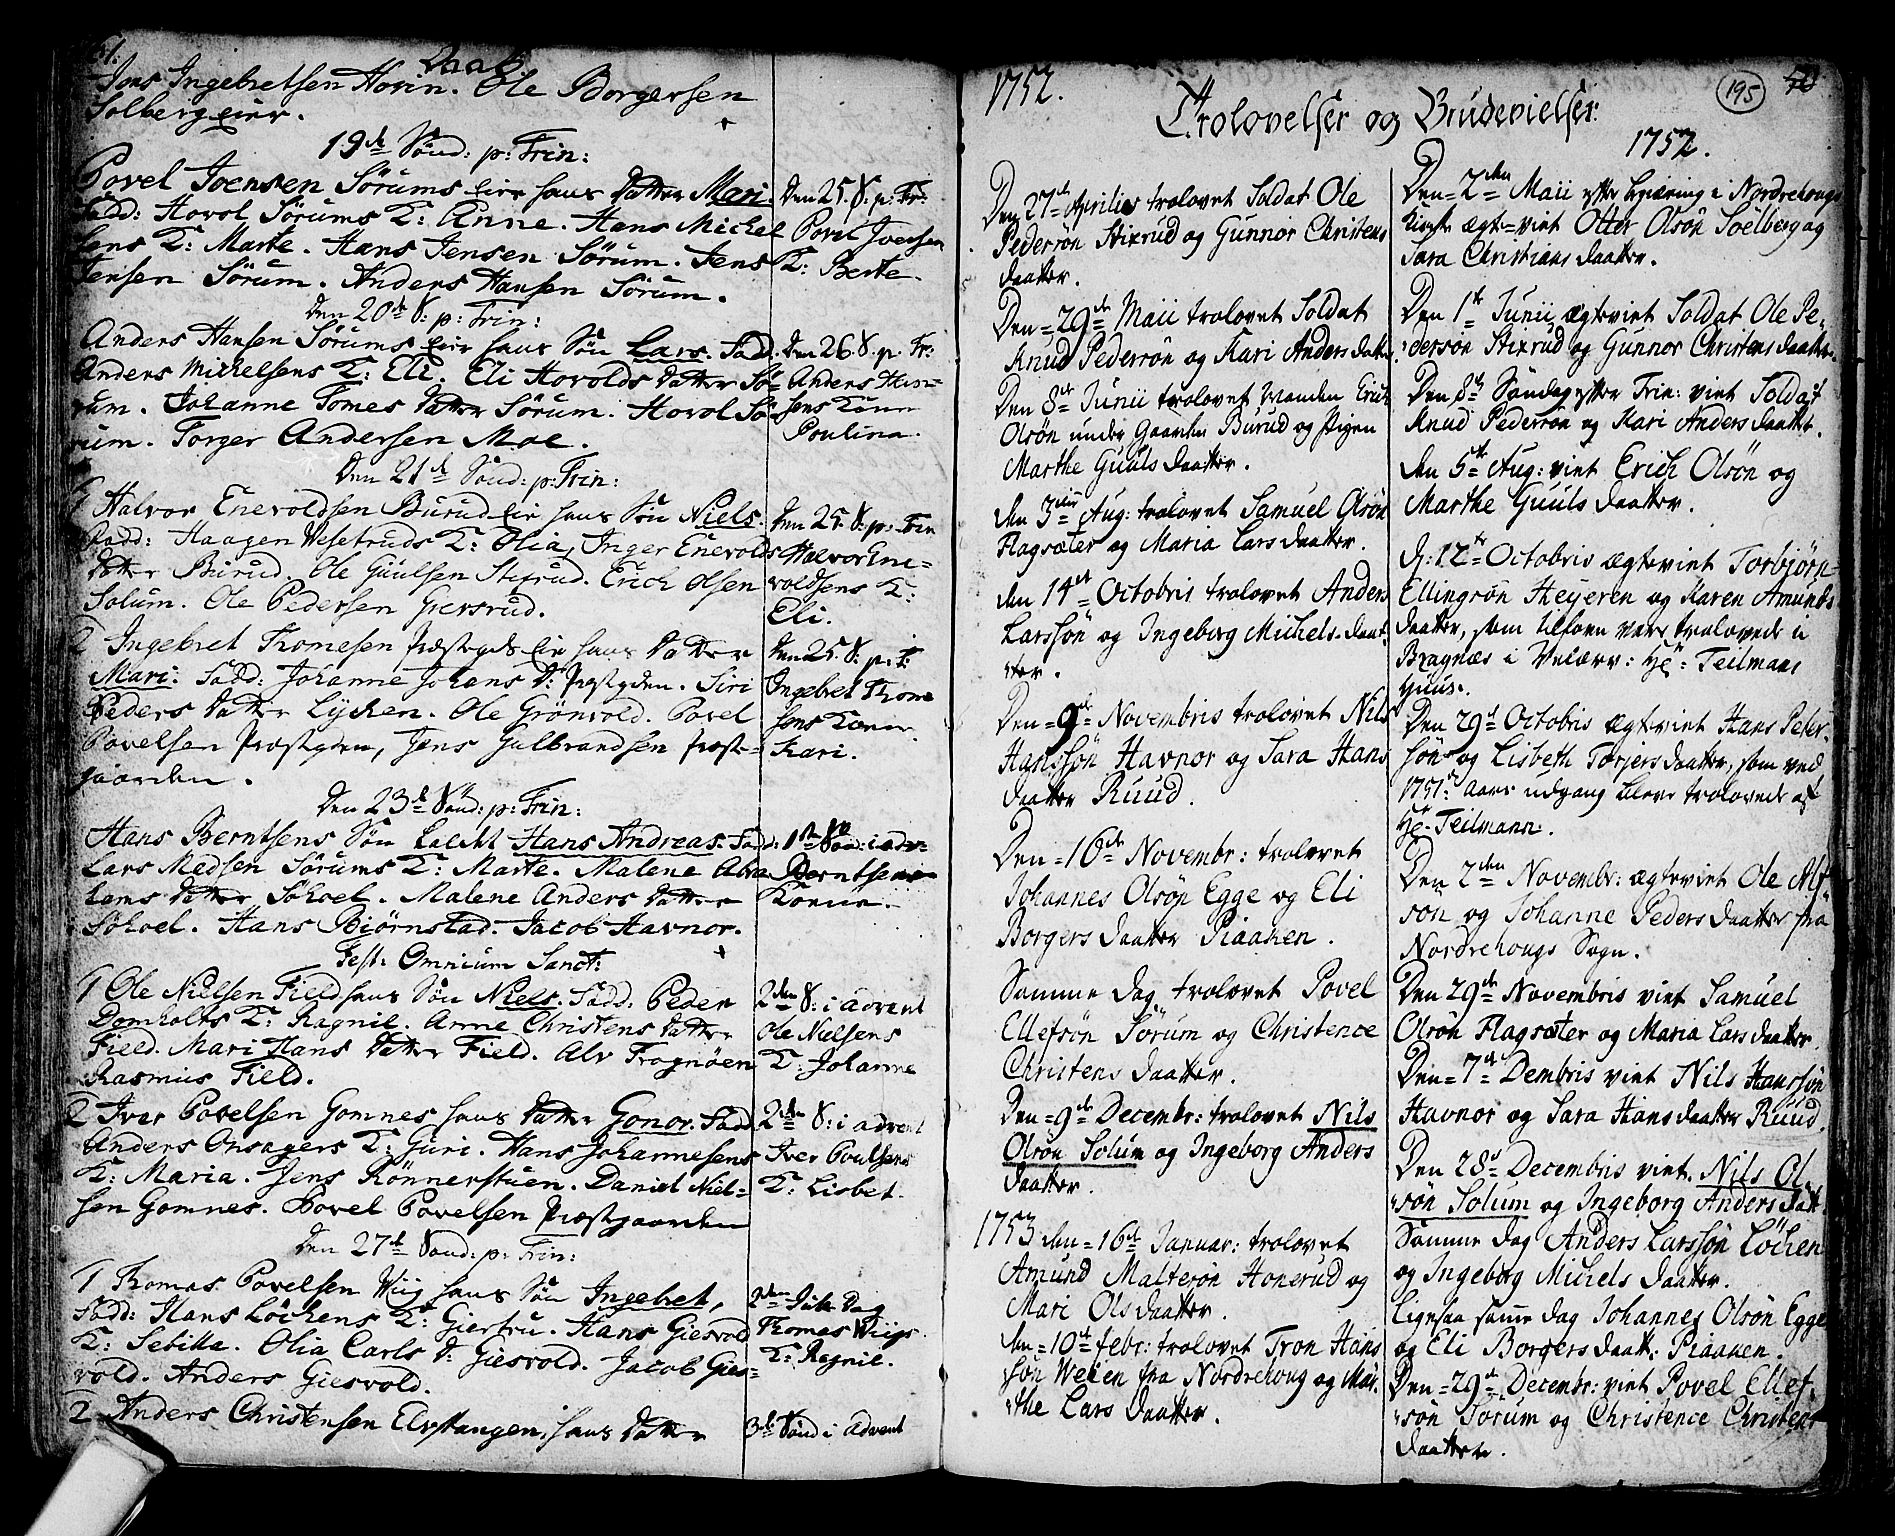 Daab
Jens Ingebretsen Hovin. Ole Borgersen
Solbergeier.
19de Sønd: p: Trin:
Povel Joensen Sørums eier hans datter Mari.
Fadd: Hovol Sørums K: Anne. Hans Michel
sens K: Marte. Hans Jensen Sørum. Jens
Jensen Sørum. Anders Hansen Sørum.
Den 20de S: p: Trin:
Anders Hansen Sørums eier hans Søn Lars. Fadd:
Anders Michelsens K: Eli. Eli Hovolds datter Sø-
rum. Johanne Tomes datter Sørum. Hovol Sø-
rum. Torger Andersen Moe.
Den 21de Sønd: p: Trin:
1 Halvor Enevoldsen Burud eier hans Søn Niels.
Fadd: Haagen Vesetruds K: Olia, Inger Enevolds
datter Burud. Ole Guulsen Stixrud. Erich Olsen
Solum. Ole Pedersen Giersrud.
2 Ingebret Thomesen Præstegds eier hans datter
Mari. Fadd: Johanne Johans D: Præstgden. Siri
Peders datter Lycken. Ole Grönvold. Povel
Povelsen Præstgden, Jens Gulbrandsen Præst-
gaarden.
Den 23de Sønd: p: Trin:
Hans Berntsens Søn kaldet Hans Andreas. Fadd:
Lars Madsen Sørums K: Marte. Malene Abra
hams datter Sohoel. Malene Anders datter
Sohoel. Hans Biørnstad. Jacob Havnor.
Fest: Omnium Sanct:
1 Ole Nielsen Field hans Søn Niels. Fadd. Peder
Domholts K: Ragnil. Anne Christens datter
Field. Mari Hans datter Field. Alv Frognøen
Rasmus Field.
2 Iver Povelsen Gomnes hans datter Gonor. Fadd
Anders Onsagers K: Guri. Hans Johannesens
K: Maria. Jens Rönnerstuen. Daniel Niel-
sen Gomnes. Povel Povelsen Præstgaarden
Den 27de Sønd: p: Trin:
1 Thomas Povelsen Wiig hans Søn Ingebret,
Fadd: Hans Löckens K: Giertru. Hans Giesvold
K: Sebilla. Olia Carls D: Giesvold. Jacob Gies-
vold. Anders Giesvold.
2 Anders Christensen Elvstangen, hans datter
Den 25. S: p: Tr:
Povel Joensen
K: Berte
Den 26. S. p. Tr:
Anders Han-
sens Kone
Poulina.
Den 25. S: p: Trin
Halvor Ene-
voldsens K:
Eli.
Den 25. S: p: T:
Ingebret Thome
sens Kone
Kari.
1ste Sønd: i adv-
Berntsens
Kone.
2den S: i advent
Ole Nielsens
K: Johanne
2den S: i advent
Iver Poulsens
K: Lisbet.
2den Jule Dag
Thomas Wiigs
K: Ragnil.
3de Sønd i Advent
1752.
195
Trolovelser og Brudevielser
1752.
Den 27de Aprilis trolovet Soldat Ole
Pedersön Stixrud og Gunnor Christens
daatter.
Den=29de Maii trolovet Soldat
Knud Pedersön og Kari Anders daatter
Den 8de Junii trolovet Manden Erich
Olsön under Gaarden Burud og Pigen
Marthe Guuls daatter.
Den 3die Aug: trolovet Samuel Olsön
Flagsæter og Maria Lars daatter.
Den 14de Octobris trolovet Anders
Larssön og Ingeborg Michels=daat
ter.
Den=9de Novembris trolovet Nils
Hanssön Havnor og Sara Hans
daatter Ruud.
Den=16de Novembr: trolovet
Johannes Olsön Egge og Eli
Borgers daatter Piaaken.
Samme dag trolovet Povel
Ellefsön Sörum og Christence
Christens daatter.
Den=9de Decembr: trolovet Nils
Olsön Solum og Ingeborg Anders
daatter.
1753 den=16de Januar: trolovet
Amund Maltesön Honerud og
Mari Ols daatter.
Den=10de febr: trolovet Tron Hans
sön Weien fra Nordrehoug og Mar
the Lars daatter.
Den=2den Maii efter begiæring i Nordrehougs
Kirche ægte=viet Otter Olsön Soelberg og
Sara Christians daatter.
Den 1ste Junii ægteviet Soldat Ole Pe-
dersön Stixrud og Gunnor Christens daatter.
Den 8de Søndag efter Trin: viet Soldat
Knud Pedersön og Kari Anders daatter.
Den 5te Aug: viet Erich Olsön og
Marthe Guuls daatter.
D: 12te Octobris ægteviet Torbjørn
Ellingsön Heyeren og Karen Amunds
daatter, som tilforn vare trolovede i
Bragnæs i Velærv: Hr: Teilmans
Huus.
Den 29de Octobris ægteviet Hans Peter
sön og Lisbeth Torjers daatter, som ved
1751. Aars udgang bleve trolovede af
Hr. Teilmann.
Den 2den Novembr: ægteviet Ole Alf-
sön og Johanne Peders daatter fra
Nordrehougs Sogn.
Den 29de Novembris viet Samuel
Olsön Flagsæter og Maria Lars daatter.
Den=7de Dembris viet Nils Hanssön
Havnor og Sara Hans daatter Ruud.
Den 28de Decembris viet. Nils Ol-
sön Solum og Ingeborg Anders daat
Samme dag Anders Larssön Löchen
og Ingeborg Michels daatter.
Ligesaa samme dag Johannes Olsön Egge
og Eli Borgers daatt: Piaaken.
Den=29de Decembr: viet Povel Ellef-
sön Sörum og Christence Christens
daatter.